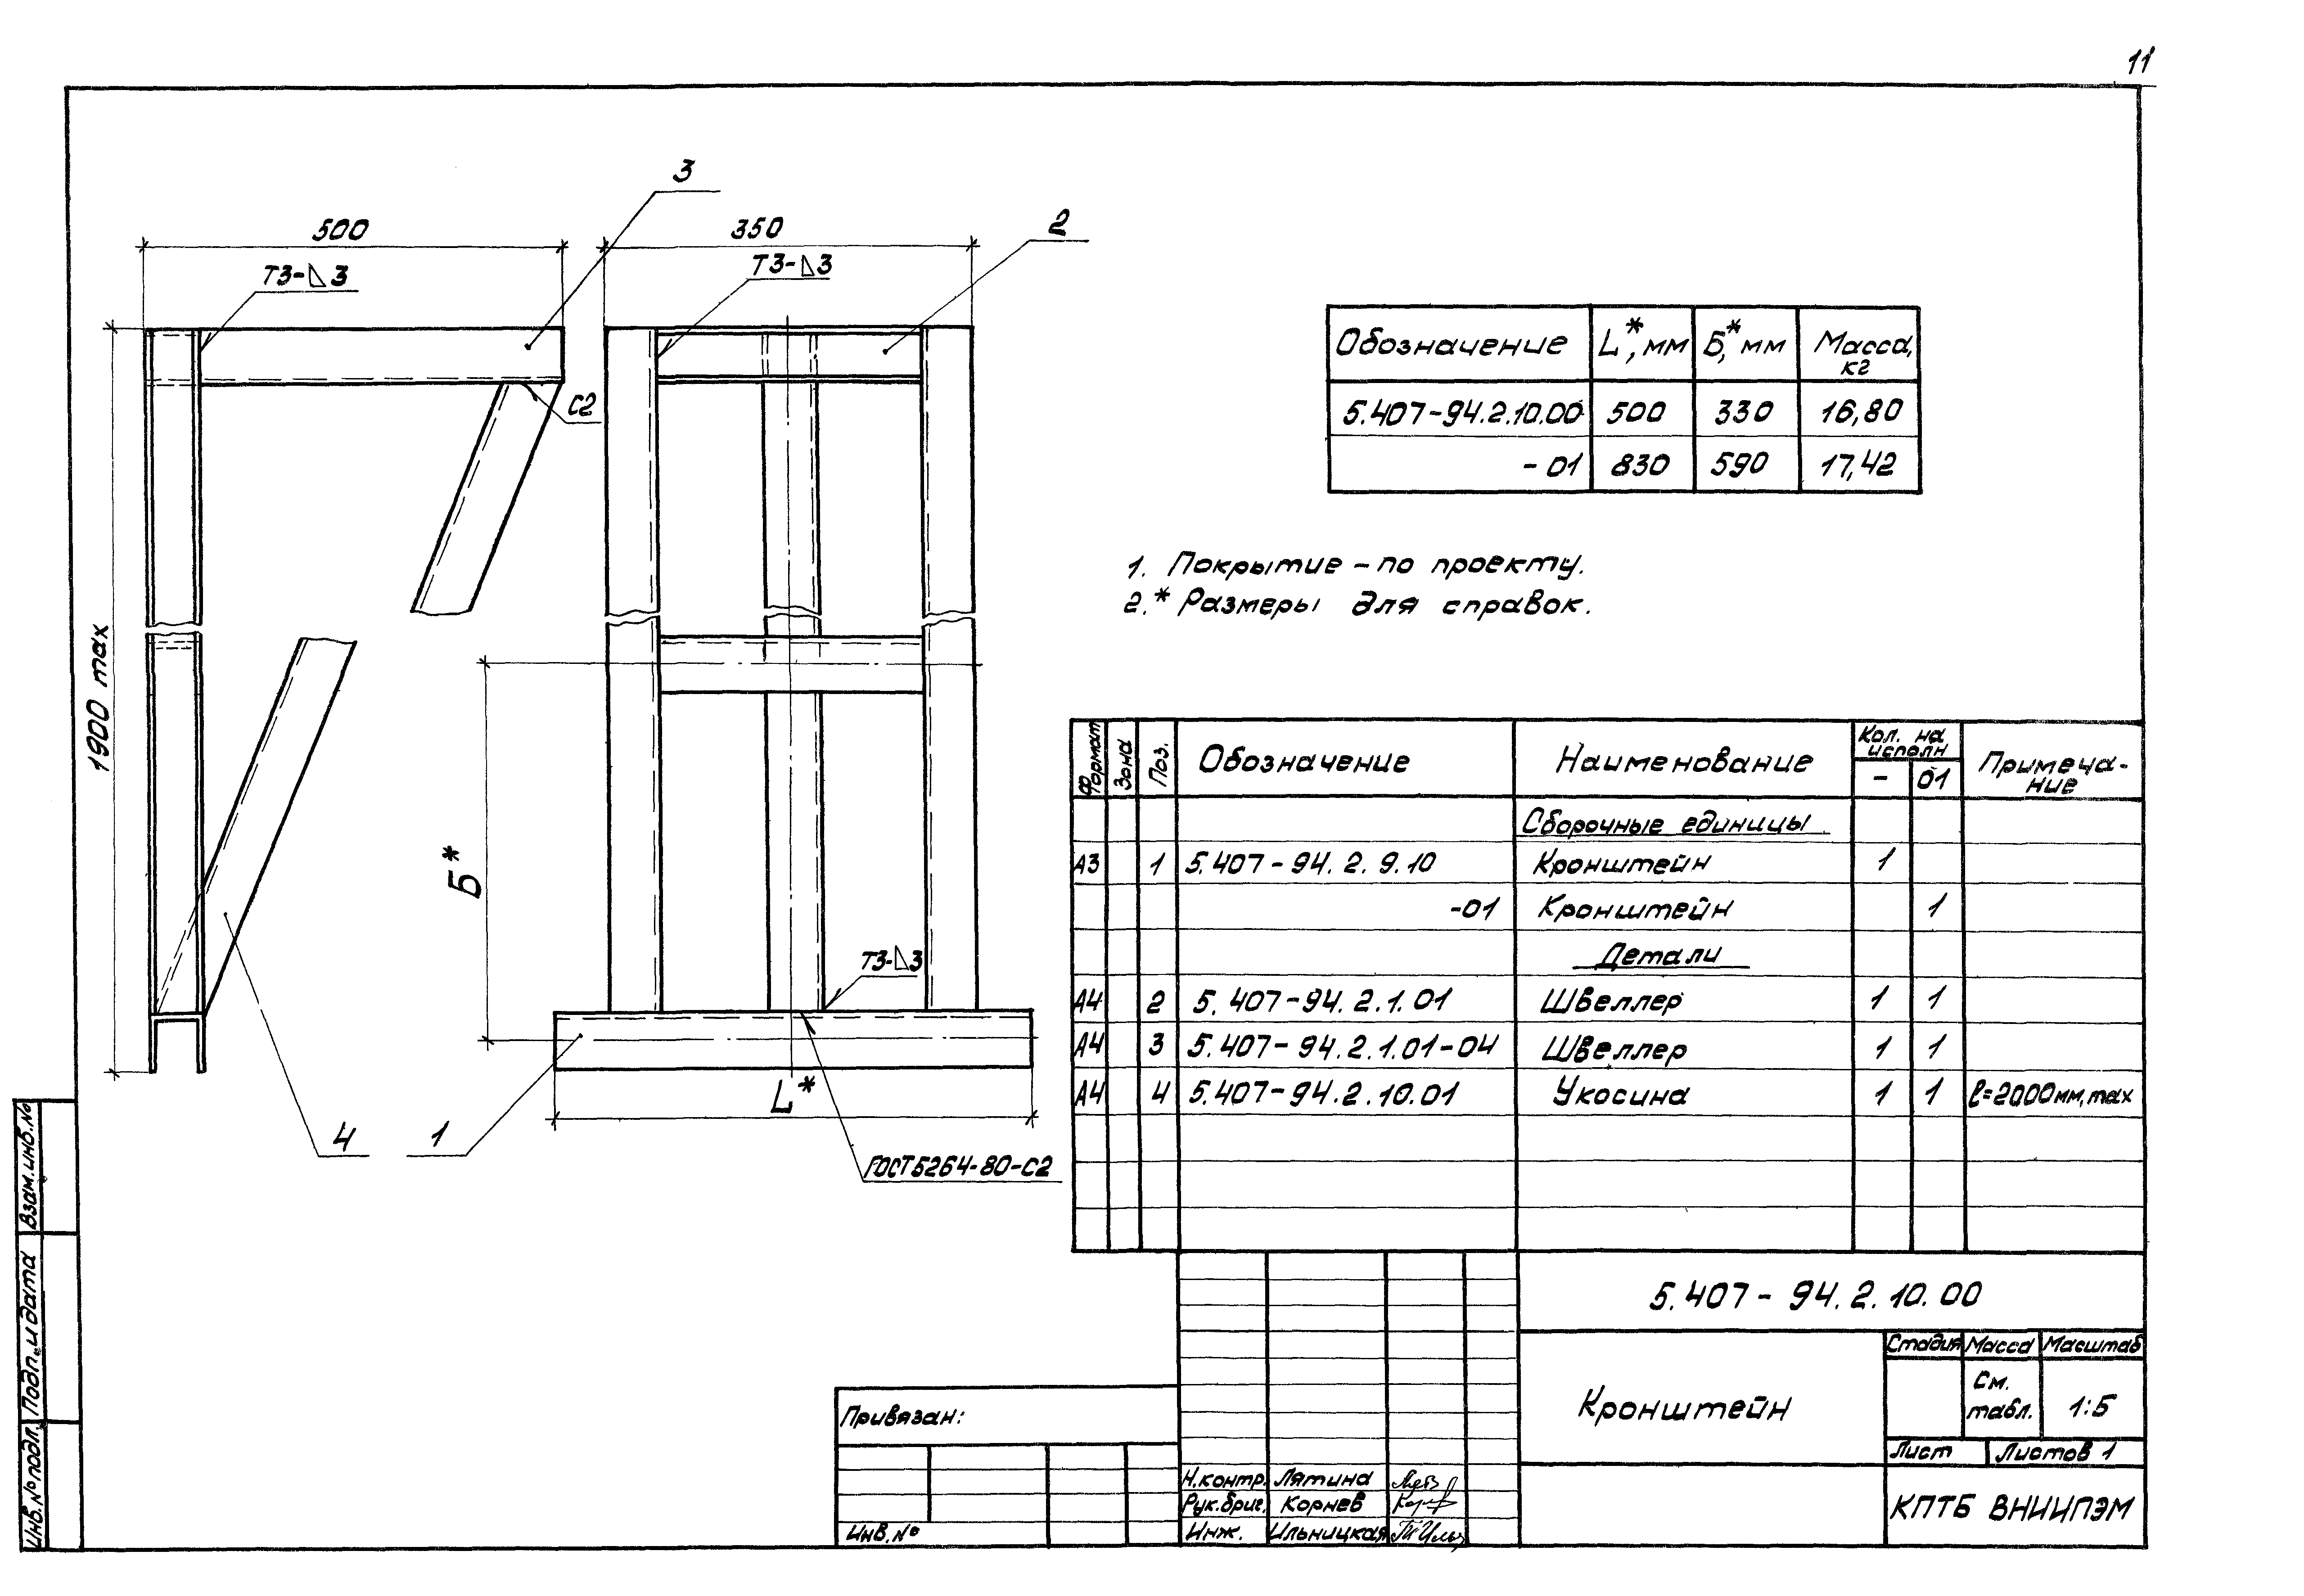 11
3
500
350
2
Т3-◺3
Т3-◺3
С2
1900 max
Б*
Т3-◺3
L*
4
1
ГОСТ 5264-80-С2
Обозначение L*, мм Б*, мм Масса, кг
5.407-94.2.10.00 500 330 16,80
-01 830 590 17,42
1. Покрытие - по проекту.
2.* Размеры для справок.
Формат Зона Поз. Обозначение Наименование Кол. на исполн - 01 Примеча-
ние
Сборочные единицы
А3 1 5.407-94.2.9.10 Кронштейн 1
-01 Кронштейн 1
Детали
А4 2 5.407-94.2.1.01 Швеллер 1 1
А4 3 5.407-94.2.1.01-04 Швеллер 1 1
А4 4 5.407-94.2.10.01 Укосина 1 1 ℓ=2000мм, max
5.407-94.2.10.00
Кронштейн
Стадия Масса Масштаб
См.
табл. 1:5
Лист Листов 1
КПТБ ВНИИПЭМ
Привязан:
Инв. №
Н.контр. Лятина
Рук.бриг. Корнев
Инж. Ильницкая
Взам.инв.№
Подп. и дата
Инв.№ подл.